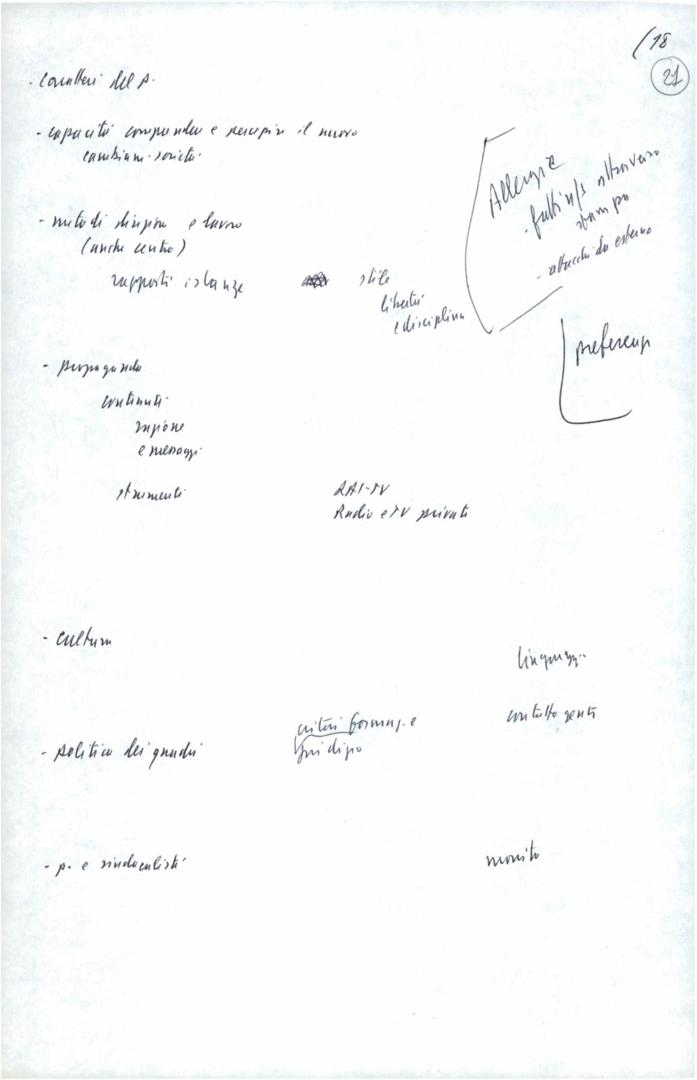 /18
21
- caratteri del p.
- capacità comprendere e recepire il nuovo
cambiam. società
- metodi direzione e lavoro
(anche centro)
rapporti istanze
stile
libertà
e disciplina
Allergie
- fatti n/s attraverso
stampa
- attacchi da esterno
preferenze
- propaganda
contenuti
e messaggi
strumenti
RAI-TV
Radio e TV private
- cultura
linguaggi
contatto gente
- politica dei quadri
criteri formaz. e
- p. e sindacalisti